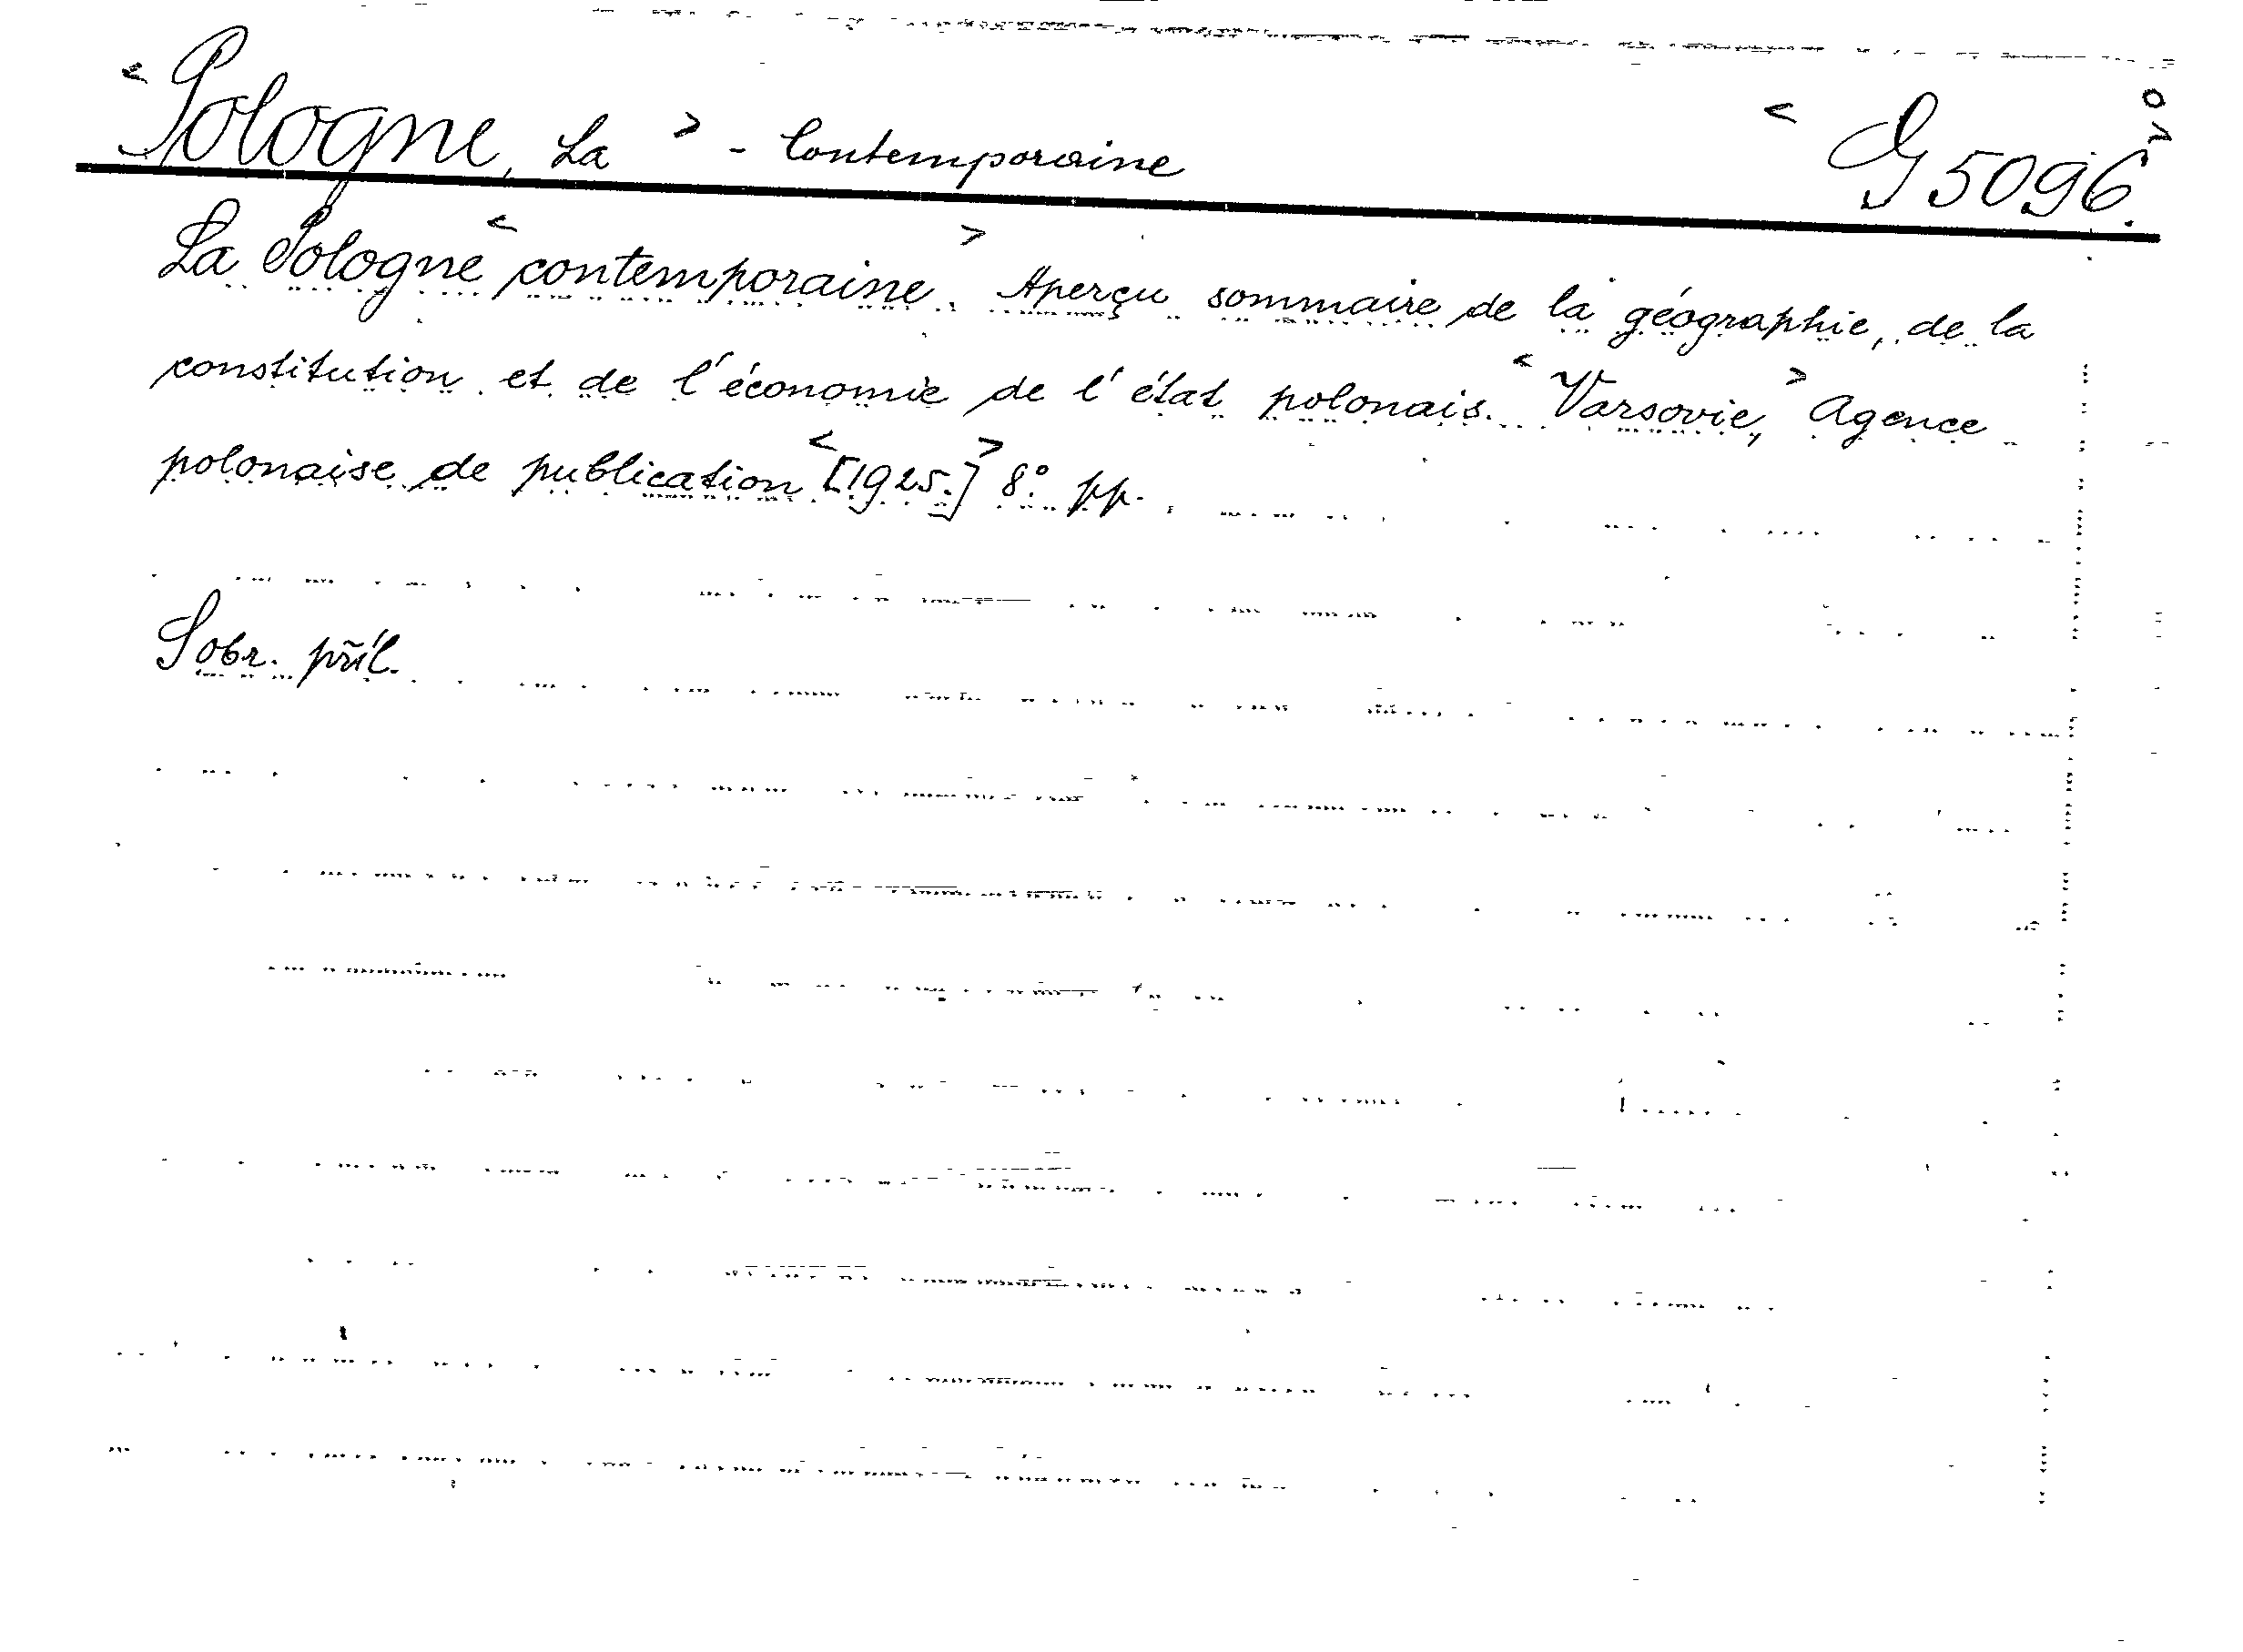 < Pologne, La > - Contemporaine < G 5096. >
La Pologne < contemporaine. > Aperçu sommaire de la géographie, de la
constitution et de l'économie de l'état polonais. < Varsovie, > Agence
polonaise de publication < [1925.] > 8° pp.
S obr. příl.